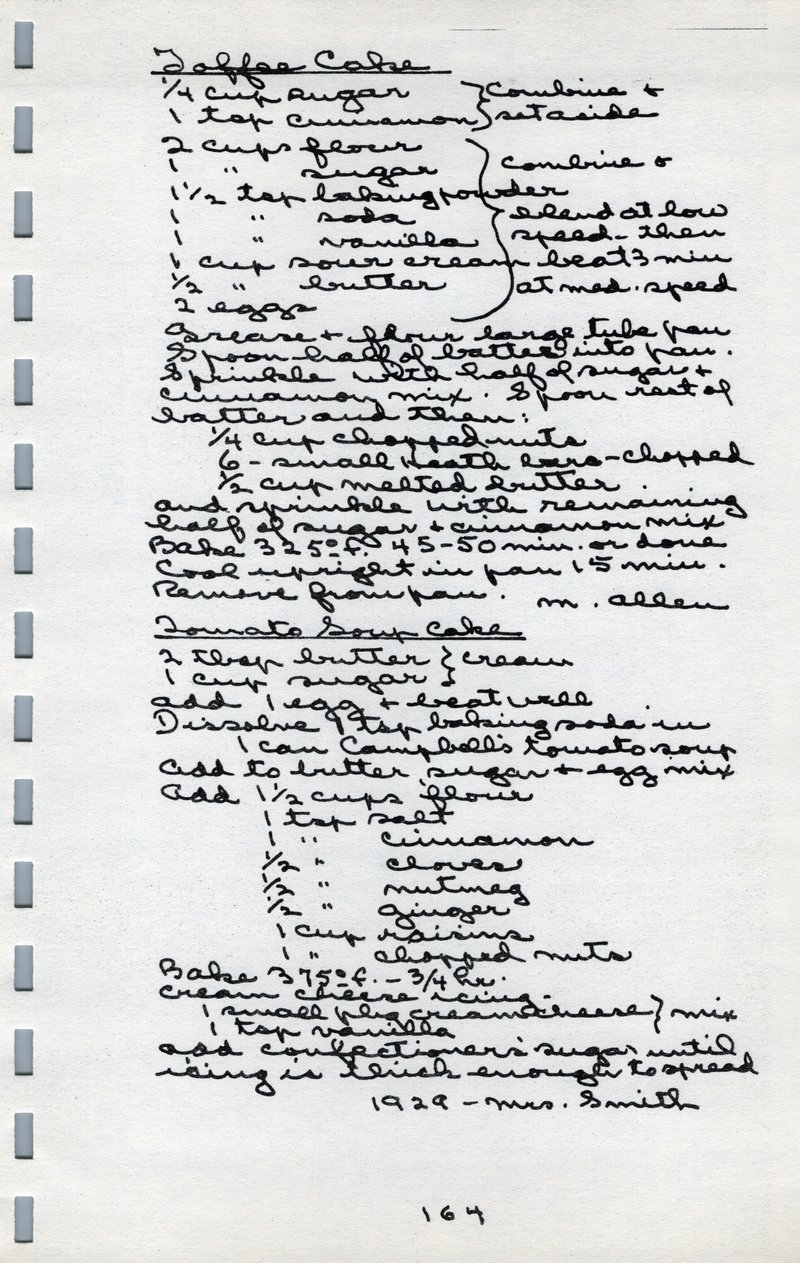 Toffee Cake
1/4 cup sugar } combine +
1 tsp cinnamon } set aside
2 cups flour
1 " sugar combine +
1 1/2 tsp baking powder
1 " soda blend at low
1 " vanilla speed - then
1 cup sour cream beat 3 min
1/2 " butter at med. speed
2 eggs
Grease + flour large tube pan
Spoon half of batter into pan.
Sprinkle with half of sugar +
cinnamon mix. Spoon rest of
batter and then:
1/4 cup chopped nuts
6 - small Heath bars - chopped
1/2 cup melted butter
and sprinkle with remaining
half of sugar + cinnamon mix
Bake 325° f. 45-50 min. or done
Cool upright in pan 15 min.
Remove from pan. M. Allen
Tomato Soup Cake
2 tbsp butter } cream
1 cup sugar }
add 1 egg + beat well
Dissolve 1 tsp baking soda in
1 can Campbell's tomato soup
Add to butter, sugar + egg mix
Add 1 1/2 cups flour
1 tsp salt
1 " cinnamon
1/2 " cloves
1/2 " nutmeg
1/2 " ginger
1 cup raisins
1 " chopped nuts
Bake 375° f. - 3/4 hr.
cream cheese icing -
1 small pkg cream cheese } mix
1 tsp vanilla
add confectioner's sugar until
icing is thick enough to spread
1929 - Mrs. Smith
164